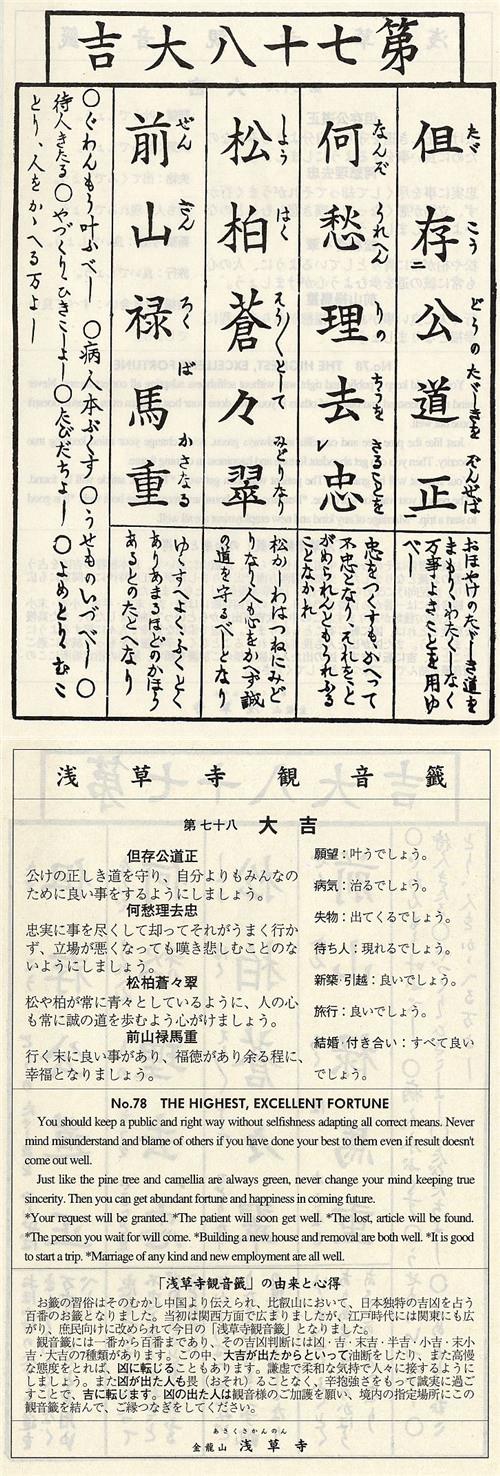 第七十八大吉
但存公道正
たゞ こう どうのたゞしきを ぞんぜば
おほやけのたゞしき道を
まもりわたくしなく
万事よきことを用ゆ
べし
何愁理去忠
なんぞ うれへん りの ちうを さることを
忠をつくすも、かへって
不忠となり、それをと
がめられんともうれふる
ことなかれ
松柏蒼々翠
しよう はく そう〱として みどりなり
松かしわはつねにみど
りなり、人も心をかへず誠
の道を守るべしとなり
前山禄馬重
ぜん ざん ろく ば かさなる
ゆくすへよくふくとく
ありあまるほどのかほり
あるとのたとへなり
〇ぐわんもう叶ふべし 〇病人本ぶくす〇うせものいづべし〇
待人きたる〇やづくりひきこしよし〇たびだちよし〇よめとりむこ
とり、人をかゝへる万よし
浅草寺観音籤
第七十八 大吉
但存公道正
公けの正しき道を守り、自分よりもみんなの
ために良い事をするようにしましょう。
何愁理去忠
忠実に事を尽くして却ってそれがうまく行か
ず、立場が悪くなっても嘆き悲しむことのな
いようにしましょう。
松柏蒼々翠
松や柏が常に青々としているように、人の心
も常に誠の道を歩むよう心がけましょう。
前山禄馬重
行く末に良い事があり、福徳があり余る程に、
幸福となりましょう。
願望：叶うでしょう。
病気：治るでしょう。
失物：出てくるでしょう。
待ち人：現れるでしょう。
新築・引越：良いでしょう。
旅行：良いでしょう。
結婚・付き合い：すべて良い
でしょう。
No.78 THE HIGHEST, EXCELLENT FORTUNE
You should keep a public and right way without selfishness adapting all correct means. Never
mind misunderstand and blame of others if you have done your best to them even if result doesn't
come out well.
Just like the pine tree and camellia are always green, never change your mind keeping true
sincerity. Then you can get abundant fortune and happiness in coming future.
*Your request will be granted. *The patient will soon get well. *The lost, article will be found.
*The person you wait for will come. *Building a new house and removal are both well. *It is good
to start a trip. *Marriage of any kind and new employment are all well.
「浅草寺観音籤」の由来と心得
お籤の習俗はそのむかし中国より伝えられ、比叡山において、日本独特の吉凶を占う
百番のお籤となりました。当初は関西方面で広まりましたが、江戸時代には関東にも広
がり、庶民向けに改められて今日の「浅草寺観音籤」となりました。
観音籤には一番から百番まであり、その吉凶判断には凶・吉・末吉・半吉・小吉・末小
吉・大吉の種類があります。この中、大吉が出たからといって油断をしたり、また高慢
な態度をとれば、凶に転じることもあります。謙虚で柔和な気持で人々に接するように
しましょう。また凶が出た人も畏（おそれ）ることなく、辛抱強さをもって誠実に過ご
すことで、吉に転じます。凶の出た人は観音様のご加護を願い、境内の指定場所にこの
観音籤を結んで、ご縁つなぎをしてください。
あさくさかんのん
金龍山 浅草寺